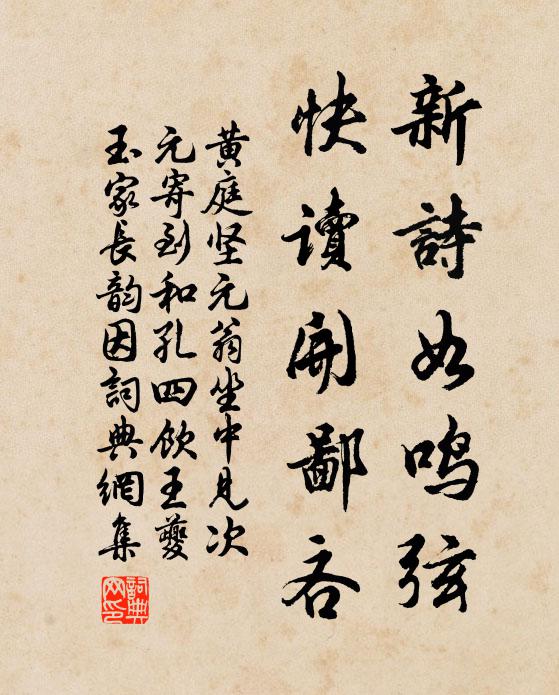 新詩如鳴弦
快讀開鄙吝
黄庭坚元翁坐中見次
元寄到和孔四飲王夔
玉家長韵因詞典網集
詞典網印